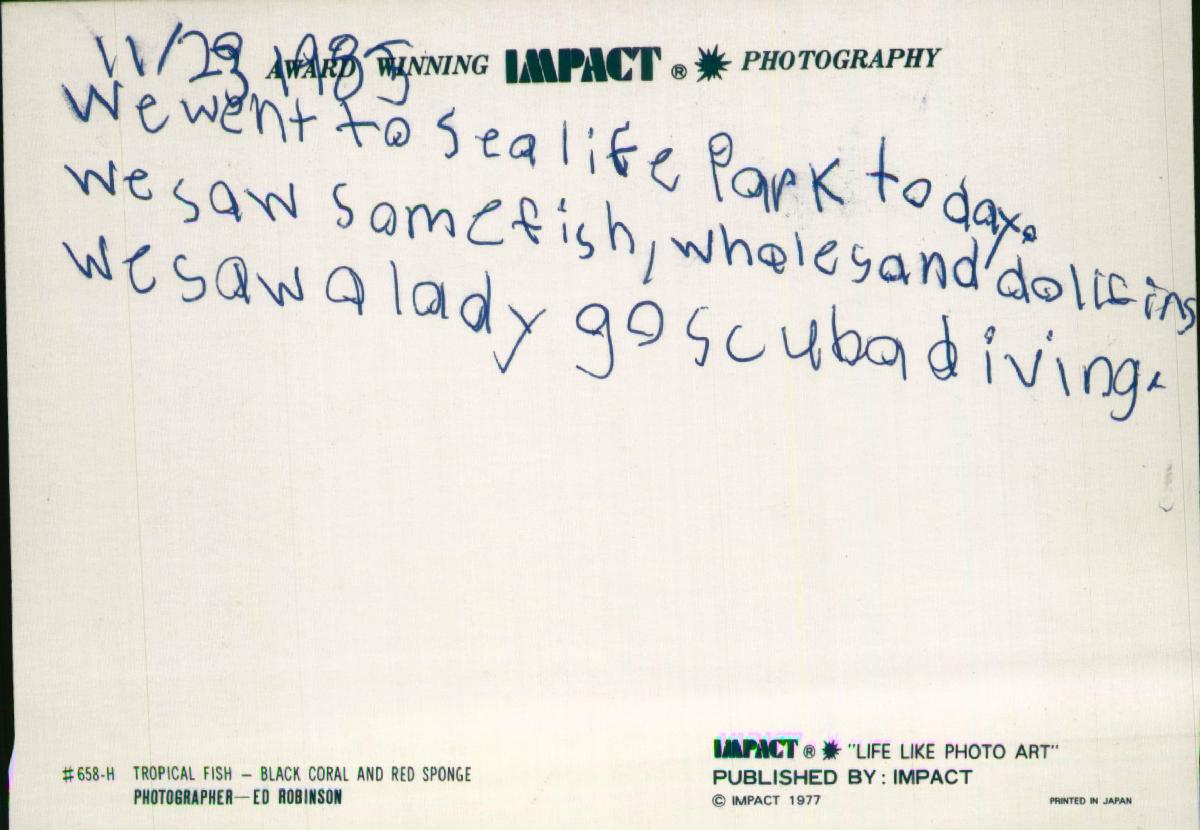 11/29 1985
AWARD WINNING IMPACT ® PHOTOGRAPHY
We went to sea life Park today.
We saw some fish, wholes and dolifins
We saw a lady go scuba diving.
#658-H TROPICAL FISH — BLACK CORAL AND RED SPONGE
PHOTOGRAPHER — ED ROBINSON
IMPACT ® "LIFE LIKE PHOTO ART"
PUBLISHED BY: IMPACT
© IMPACT 1977
PRINTED IN JAPAN